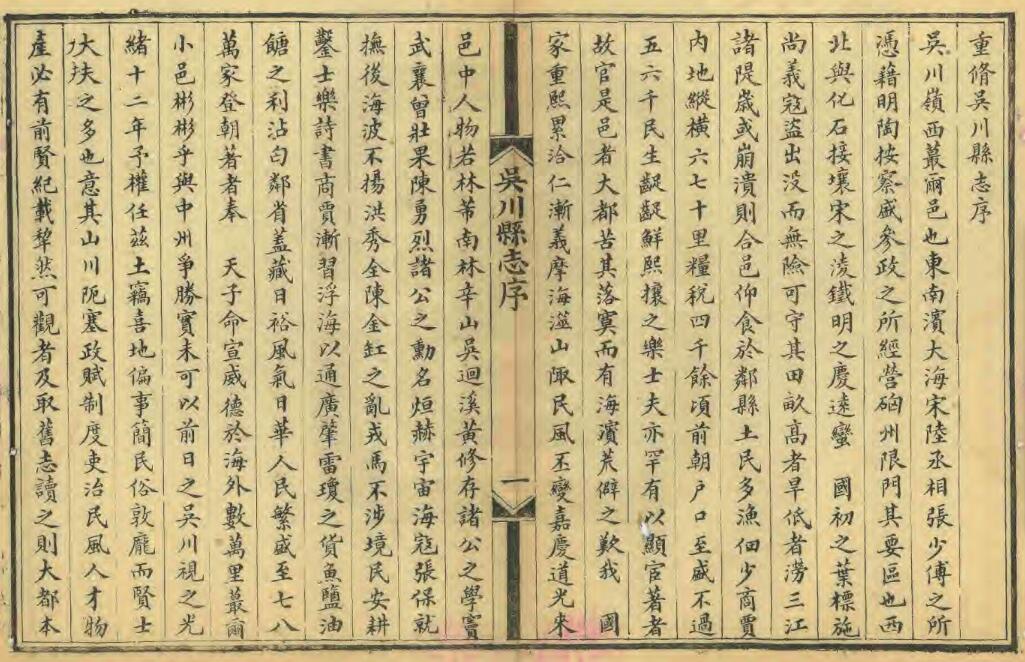 重脩吳川縣志序
吳川嶺西蕞爾邑也東南濱大海宋陸丞相張少傅之所
憑藉明陶按察盛參政之所經營硇州限門其要區也西
北與化石接壤宋之淩鐵明之慶遠蠻　國初之葉標施
尚義寇盜出没而無險可守其田畝高者旱低者澇三江
諸隄歲或崩潰則合邑仰食於鄰縣土民多漁佃少商賈
内地縱横六七十里糧稅四千餘頃前朝户口至盛不過
五六千民生齷齪鮮熙攘之樂士夫亦罕有以顯宦著者
故官是邑者大都苦其落寞而有海濱荒僻之歎我　國
家重熙累洽仁漸義摩海澨山陬民風丕變嘉慶道光來
吳川縣志序
一
邑中人物若林芾南林辛山吳迴溪黃修存諸公之學竇
武襄曾壯果陳勇烈諸公之勳名烜赫宇宙海寇張保就
撫後海波不揚洪秀全陳金缸之亂戎馬不涉境民安耕
鑿士樂詩書商賈漸習浮海以通廣肇雷瓊之貨魚鹽油
餹之利沾匄鄰省蓋藏日裕風氣日華人民繁盛至七八
萬家登朝著者奉　天子命宣威德於海外數萬里蕞爾
小邑彬彬乎與中州爭勝實未可以前日之吳川視之光
緒十二年予權任茲土竊喜地偏事簡民俗敦龐而賢士
大夫之多也意其山川阨塞政賦制度吏治民風人才物
產必有前賢紀載犂然可觀者及取舊志讀之則大都本